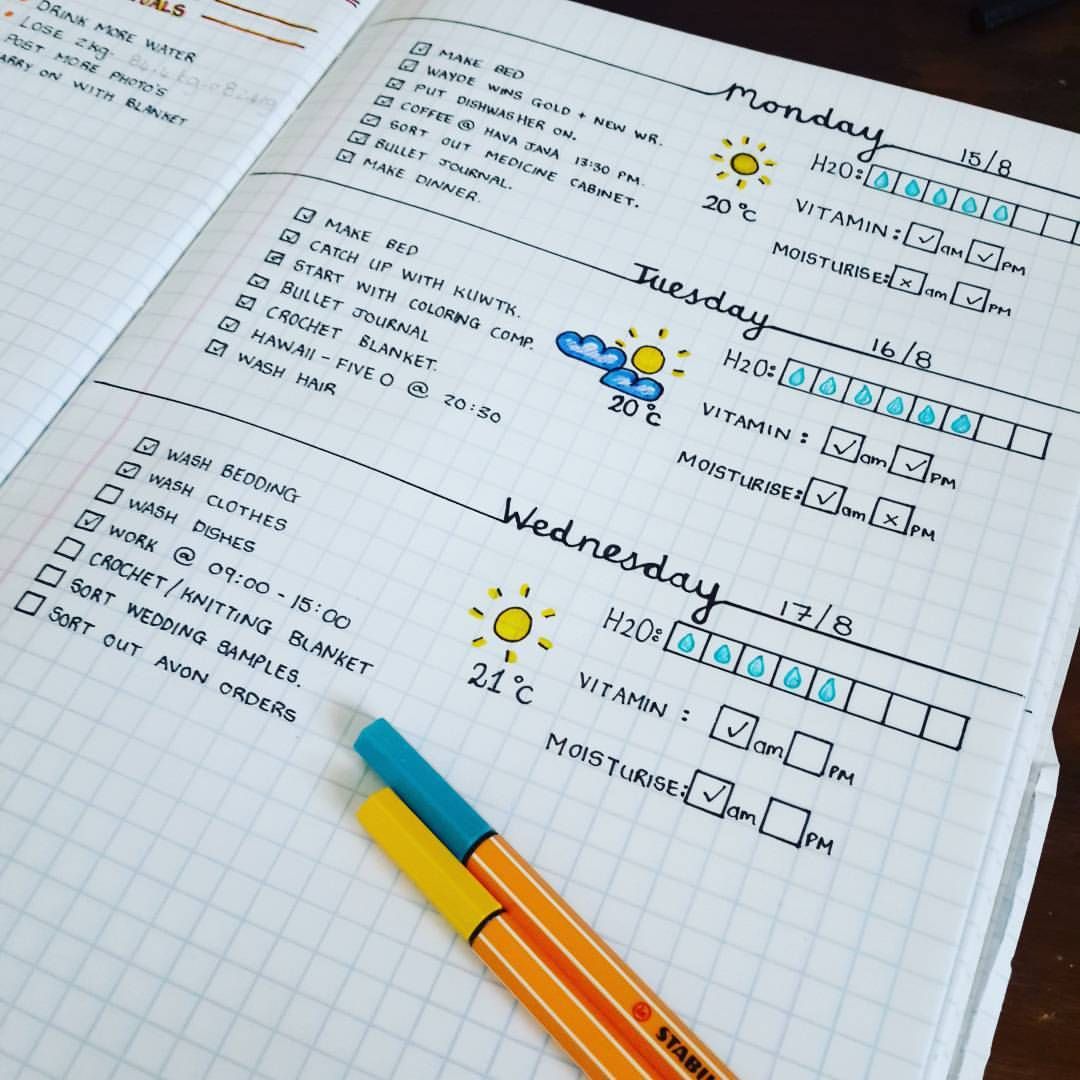 DRINK MORE WATER
LOSE 2kg.
POST MORE PHOTO'S
CARRY ON WITH BLANKET
Monday 15/8
MAKE BED
WAYDE WINS GOLD + NEW WR.
PUT DISHWASHER ON.
COFFEE @ HAVA JAVA 13:30 PM.
SORT OUT MEDICINE CABINET.
BULLET JOURNAL.
MAKE DINNER.
20°C
H2O:
VITAMIN: am PM
MOISTURISE: am PM
Tuesday 16/8
MAKE BED
CATCH UP WITH KUWTK.
START WITH COLORING COMP.
BULLET JOURNAL
CROCHET BLANKET.
HAWAII-FIVE O @ 20:30
WASH HAIR
20°C
H2O:
VITAMIN: am PM
MOISTURISE: am PM
Wednesday 17/8
WASH BEDDING
WASH CLOTHES
WASH DISHES
WORK @ 09:00 - 15:00
CROCHET/KNITTING BLANKET
SORT WEDDING SAMPLES.
SORT OUT AVON ORDERS
21°C
H2O:
VITAMIN: am PM
MOISTURISE: am PM
STABI